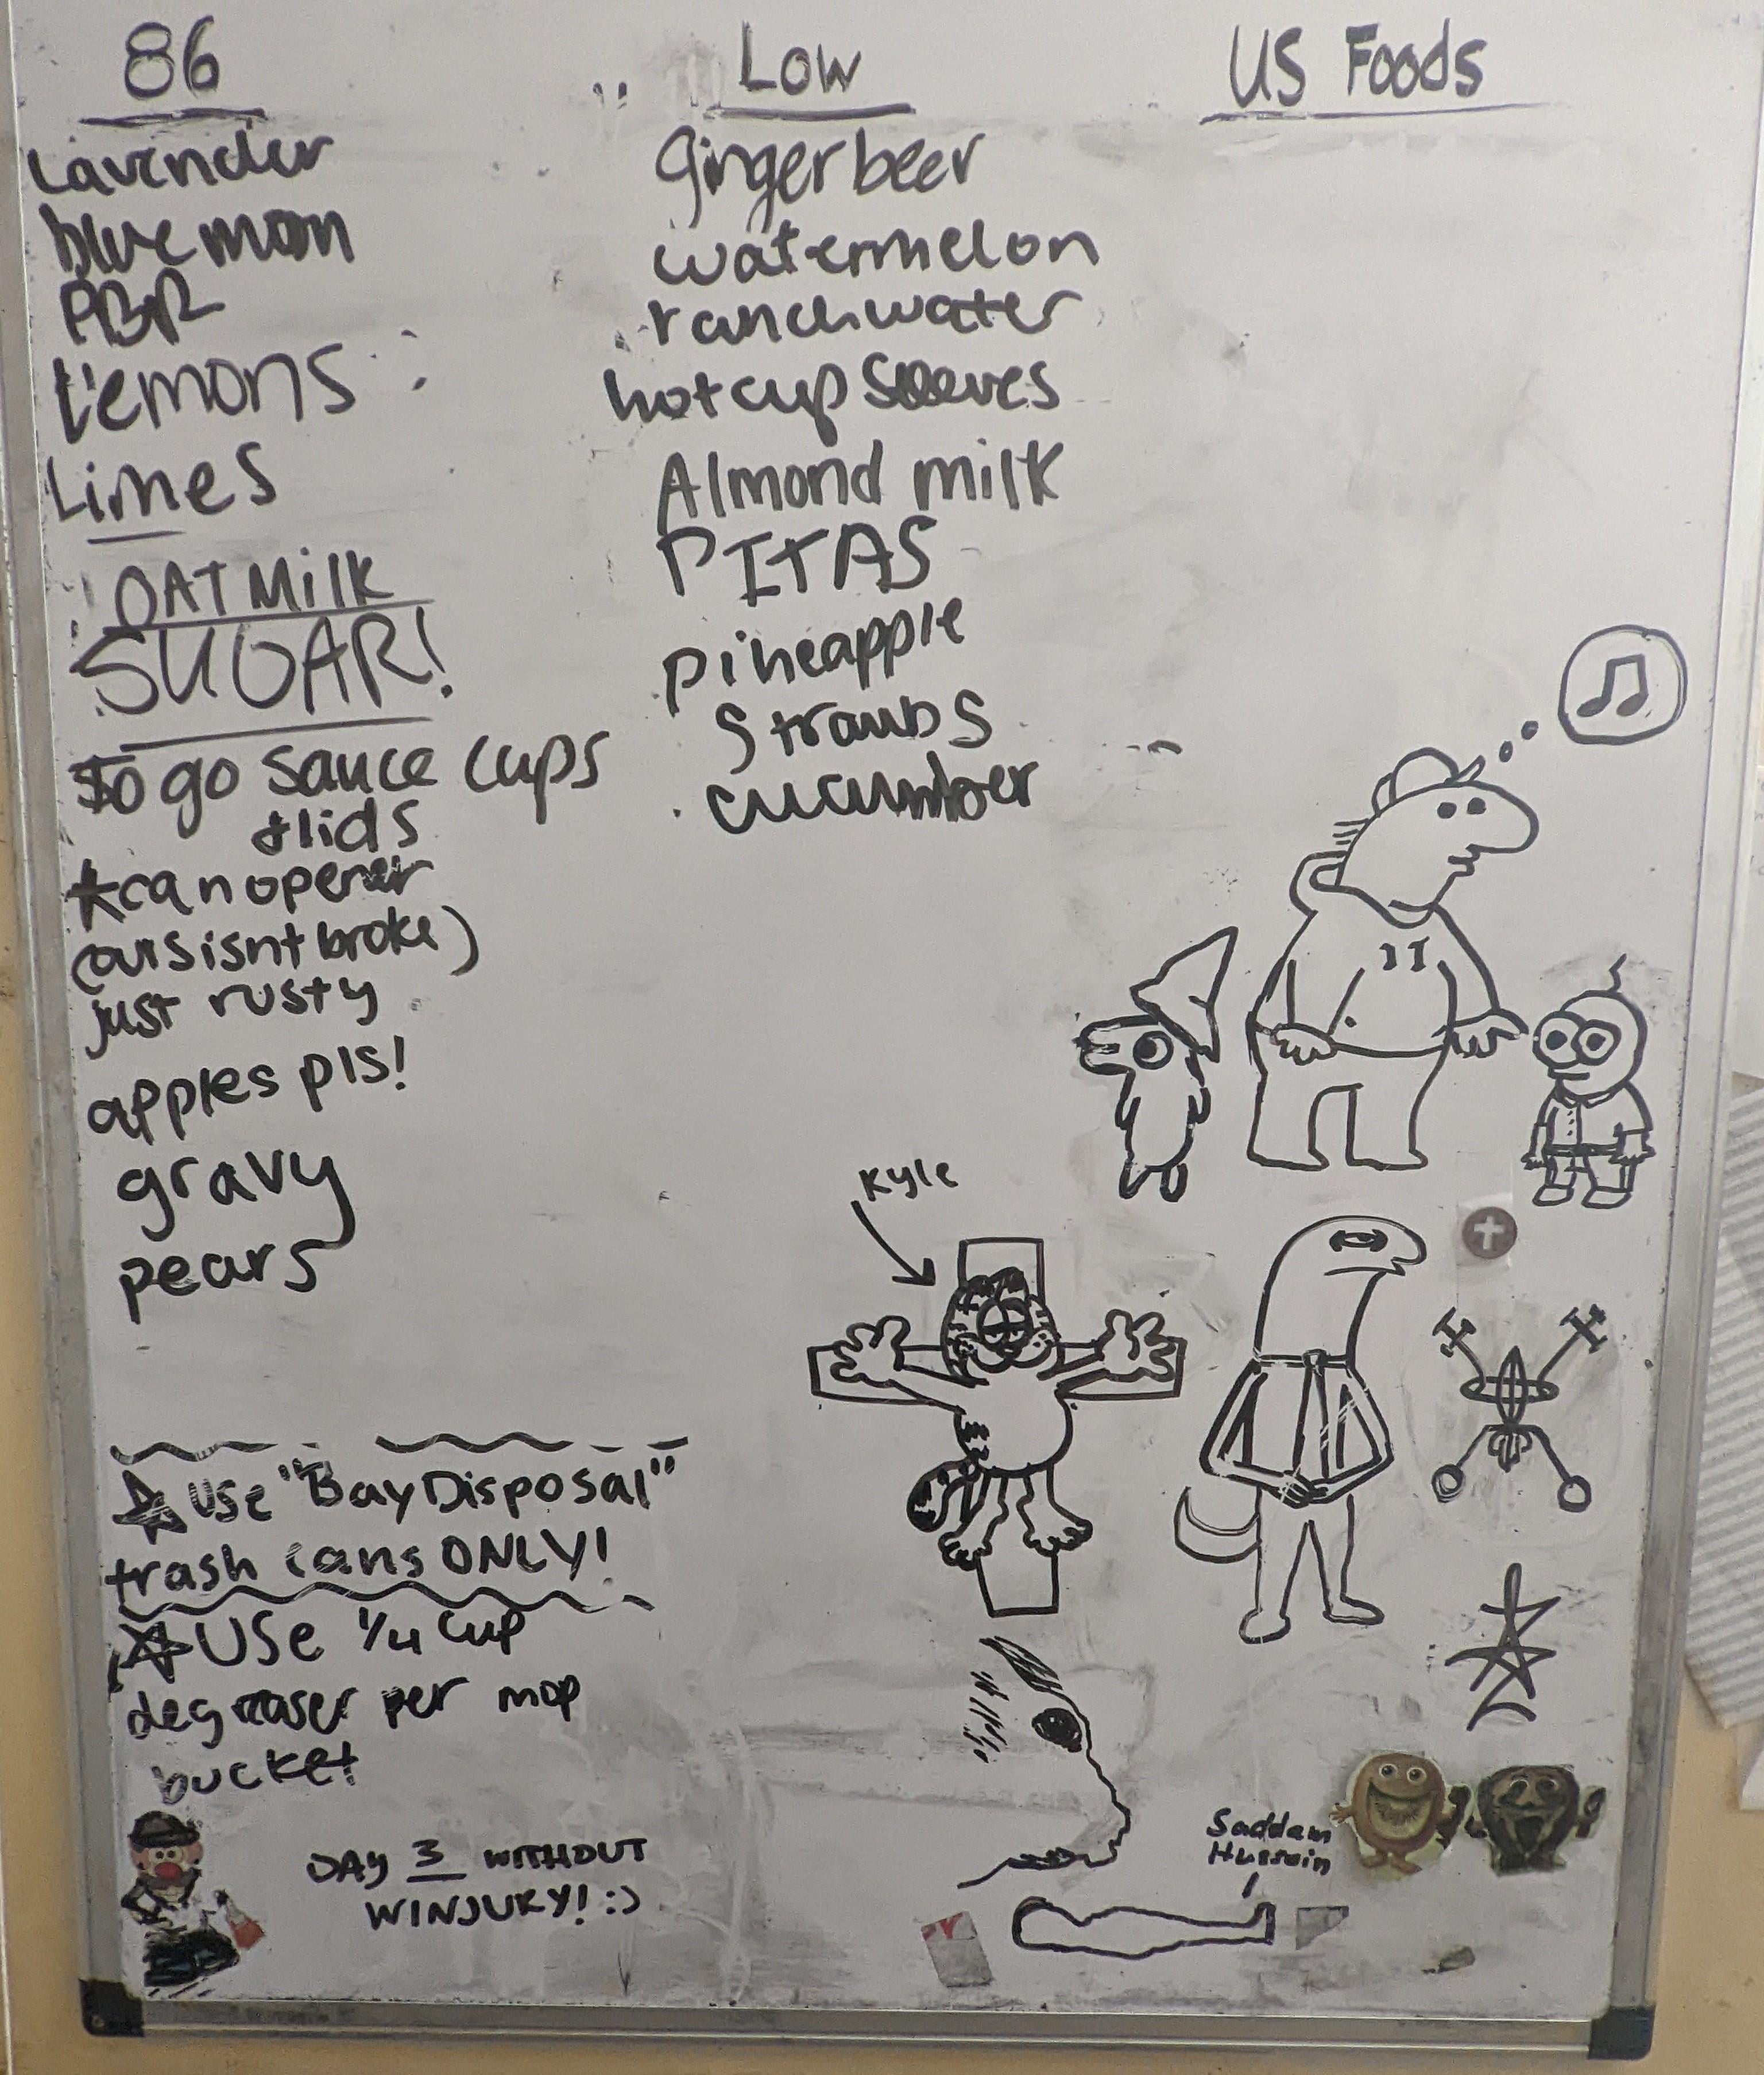 86
Lavender
blue moon
PBR
Lemons
Limes
OAT Milk
SUGAR!
to go sauce cups
+ lids
*can opener
(ours isnt broke)
just rusty
apples pls!
gravy
pears
☆ use "Bay Disposal"
trash cans ONLY!
☆ USe 1/4 cup
degreaser per mop
bucket
DAY 3 WITHOUT
WINJURY! :)
Low
Ginger beer
watermelon
ranch water
hot cup sleeves
Almond milk
PITAS
pineapple
Strawbs
cucumber
US Foods
Kyle
Saddam
Hussein